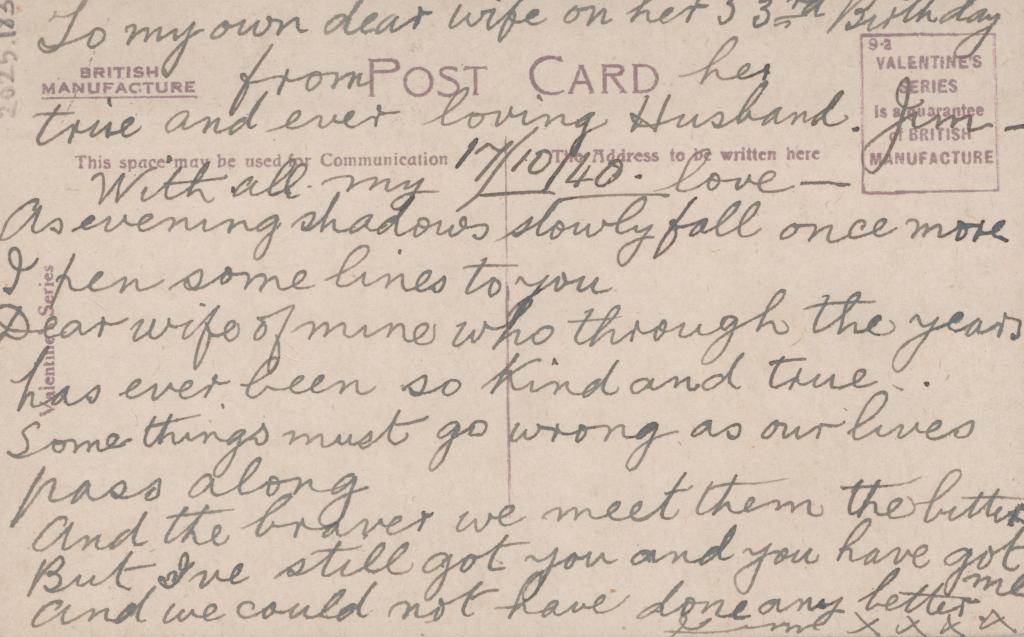 To my own dear wife on her 33rd Birthday
BRITISH MANUFACTURE
POST CARD
from her
true and ever loving Husband. Jim —
9.2
VALENTINE'S
SERIES
is a guarantee
of BRITISH
MANUFACTURE
This space may be used for Communication
The Address to be written here
17/10/40.
With all my love —
As evening shadows slowly fall once more
I pen some lines to you
Dear wife of mine who through the years
has ever been so kind and true .
Some things must go wrong as our lives
pass along
And the braver we meet them the better
But I've still got you and you have got
me
And we could not have done any better
x x x x
Valentine's Series